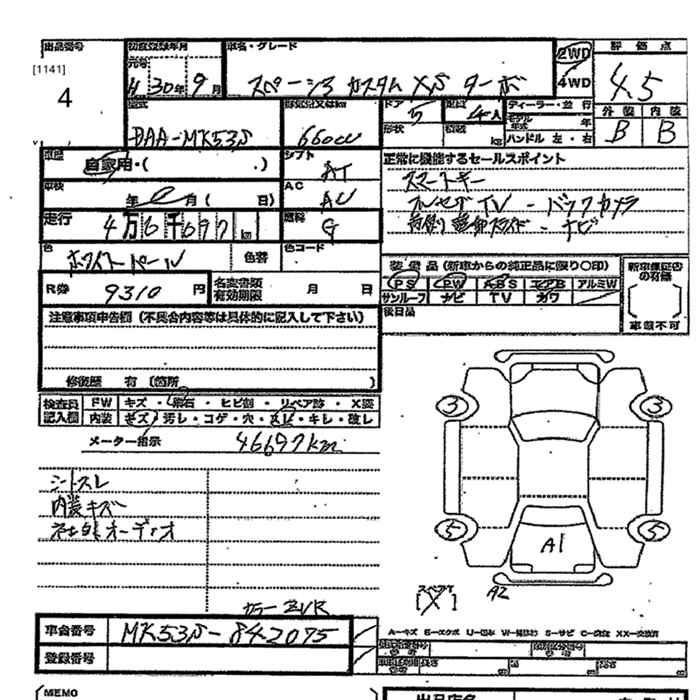 出品番号
[1141]
4
初度登録年月
元号
H 30年 9月
車名・グレード
スペーシア カスタム XS ターボ
2WD
4WD
評価点
4.5
外装 内装
B B
型式
DAA-MK53S
排気量又はkw
660cc
ドア
5
形状
定員
4人
積載
kg
ディーラー・並行
モデル年式 年
ハンドル 左・右
車歴
自家用・( )
シフト
AT
正常に機能するセールスポイント
スマートキー
フルセグTV - バックカメラ
両側電動スライド - ナビ
車検
年 月 ( 日)
AC
AC
走行
4万6千697km
燃料
G
色
ホワイトパール
色替
色コード
R券
9310円
名変書類有効期限
月 日
装備品(新車からの純正品に限り○印)
PS PW ABS エアB アルミW
サンルーフ ナビ TV カワ
後日品
新車保証書の有無
車載不可
注意事項申告欄(不具合内容等は具体的に記入して下さい)
修復歴 有 (箇所 )
検査員記入欄
FW キズ・飛石・ヒビ割・リペア跡・X要
内装 キズ・汚レ・コゲ・穴・・キレ・改し
メーター指示 46697km
シートスレ
内装キズ
社外オーディオ
3 3
5 5
A1
A2
スペアタイヤ
[X]
カラー ZVR
車台番号
MK53S-842075
登録番号
A-キズ E-エクボ U-凹み W-補修わり S-サビ C-腐食 XX-交換済
MEMO
出品店名